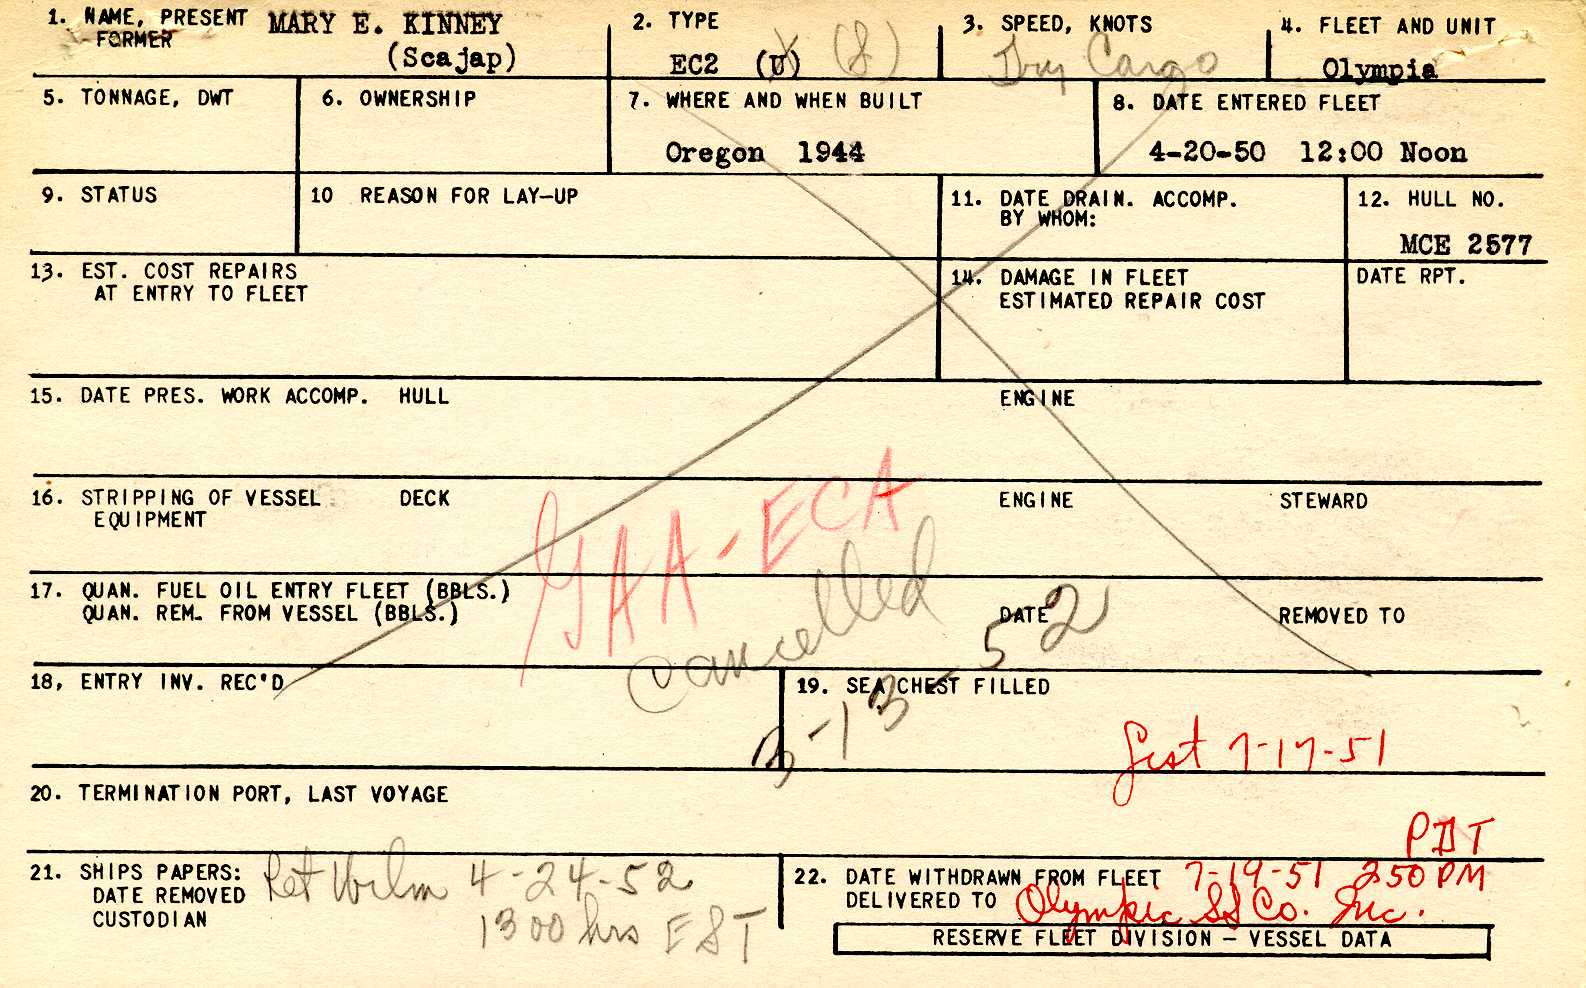 1. NAME, PRESENT MARY E. KINNEY
FORMER (Scajap)
2. TYPE
EC2 (U) (S)
3. SPEED, KNOTS
Dry Cargo
4. FLEET AND UNIT
Olympia
5. TONNAGE, DWT
6. OWNERSHIP
7. WHERE AND WHEN BUILT
Oregon 1944
8. DATE ENTERED FLEET
4-20-50 12:00 Noon
9. STATUS
10 REASON FOR LAY-UP
11. DATE DRAIN. ACCOMP.
BY WHOM:
12. HULL NO.
MCE 2577
13. EST. COST REPAIRS
AT ENTRY TO FLEET
14. DAMAGE IN FLEET
ESTIMATED REPAIR COST
DATE RPT.
15. DATE PRES. WORK ACCOMP. HULL ENGINE
16. STRIPPING OF VESSEL DECK ENGINE STEWARD
EQUIPMENT
GAA-ECA
cancelled
17. QUAN. FUEL OIL ENTRY FLEET (BBLS.)
QUAN. REM. FROM VESSEL (BBLS.) DATE REMOVED TO
3-13-52
18, ENTRY INV. REC'D
19. SEA CHEST FILLED
7-17-51
20. TERMINATION PORT, LAST VOYAGE
PDT
21. SHIPS PAPERS: Ret Wilm 4-24-52
DATE REMOVED
CUSTODIAN 1300 hrs EST
22. DATE WITHDRAWN FROM FLEET 7-19-51 250 PM
DELIVERED TO Olympic SS Co. Inc.
RESERVE FLEET DIVISION - VESSEL DATA